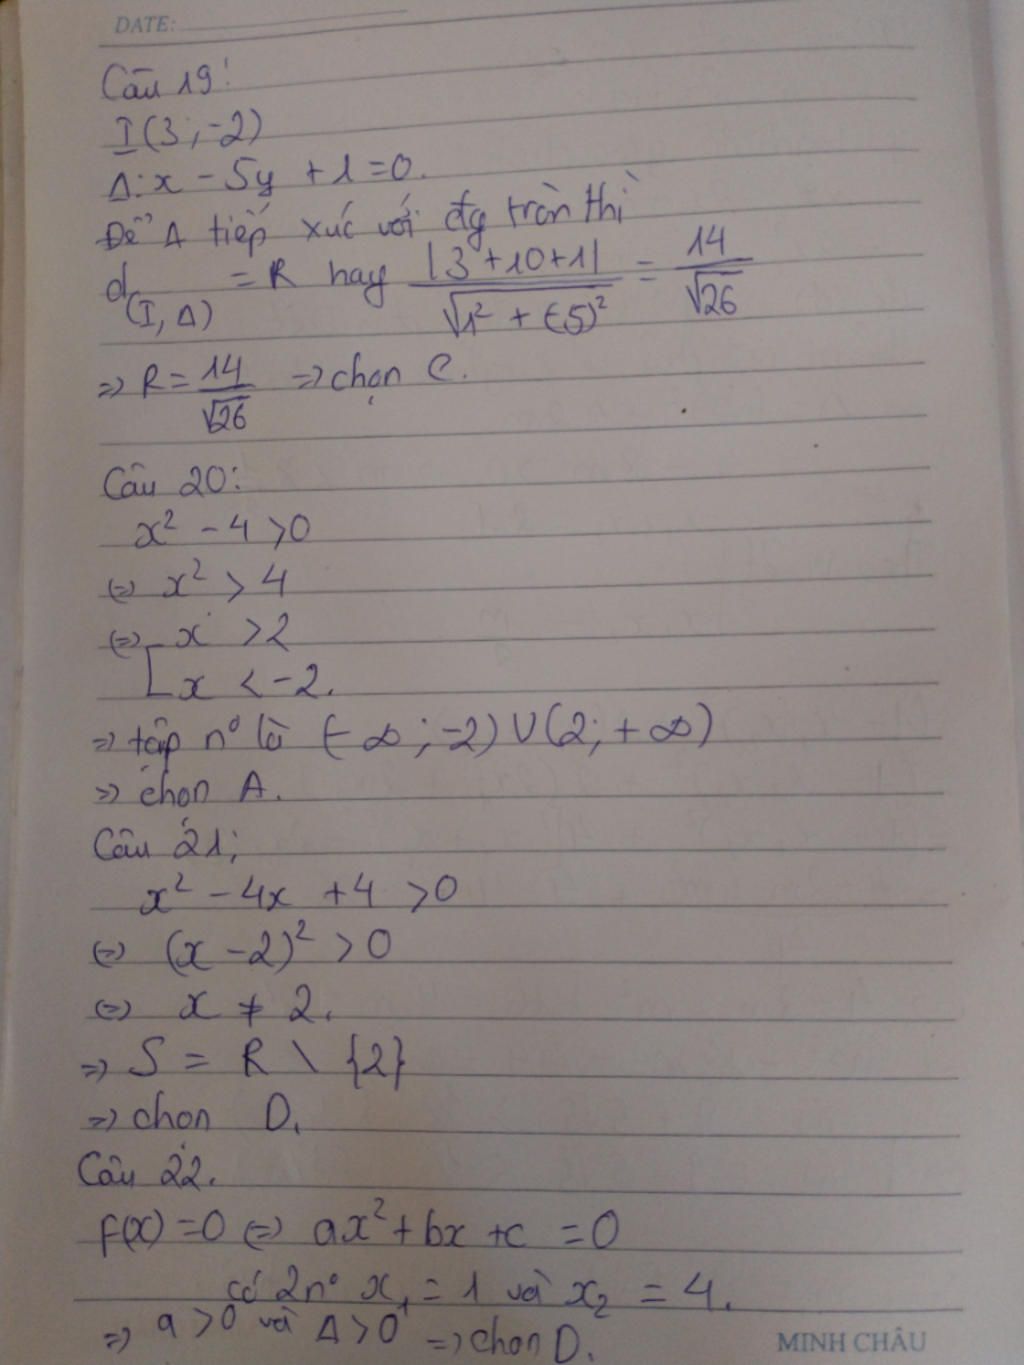 DATE:
Câu 19:
I(3;-2)
Δ: x - 5y + 1 = 0.
Để Δ tiếp xúc với đtg tròn thì
d(I, Δ) = R hay |3 + 10 + 1| / √1² + (-5)² = 14/√26
=> R = 14/√26 => chọn C.
Câu 20:
x² - 4 > 0
<=> x² > 4
<=> [ x > 2
x < -2.
=> tập n° là (-∞; -2) ∪ (2; +∞)
=> chọn A.
Câu 21:
x² - 4x + 4 > 0
<=> (x - 2)² > 0
<=> x ≠ 2.
=> S = R \ {2}
=> chọn D.
Câu 22.
f(x) = 0 <=> ax² + bx + c = 0
có 2 n° x₁ = 1 và x₂ = 4.
=> a > 0 và Δ > 0 => chọn D.
MINH CHÂU